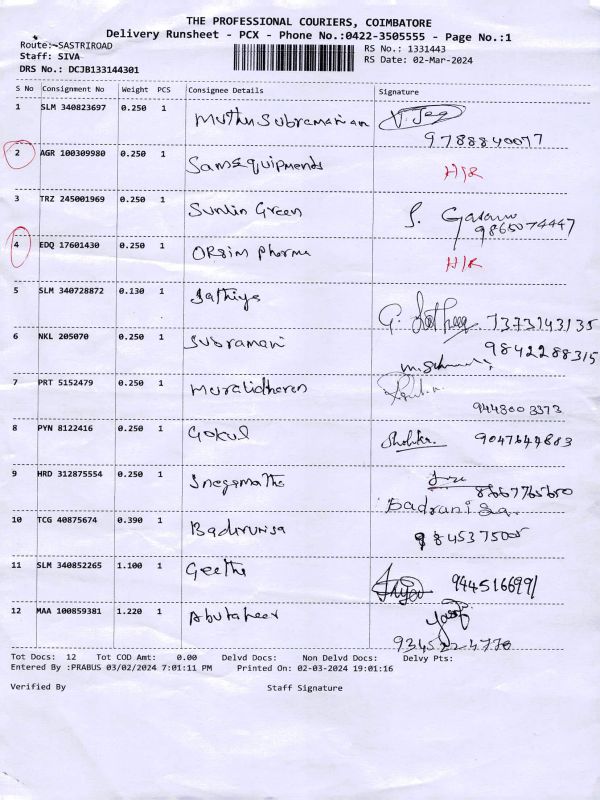 THE PROFESSIONAL COURIERS, COIMBATORE
Delivery Runsheet - PCX - Phone No.:0422-3505555 - Page No.:1
Route:-SASTRIROAD
Staff: SIVA
DRS No.: DCJB133144301
RS No.: 1331443
RS Date: 02-Mar-2024
S No Consignment No Weight PCS Consignee Details Signature
1 SLM 340823697 0.250 1 Muthu Subramaniam
9788840077
2 AGR 100309980 0.250 1 Sams Equipments H/R
3 TRZ 245001969 0.250 1 Sunlin Green
9865074447
4 EDQ 17601430 0.250 1 ORSim Pharma H/R
5 SLM 340728872 0.130 1 Sathiya 7373143135
6 NKL 205070 0.250 1 Subramani 9842288315
7 PRT 5152479 0.250 1 Muralidharen
9448003373
8 PYN 8122416 0.250 1 Gokul 9047649883
9 HRD 312875554 0.250 1 Snegamatha
8667765650
10 TCG 40875674 0.390 1 Badirunisa
9845375005
11 SLM 340852265 1.100 1 Geetha 9445166991
12 MAA 100859381 1.220 1 Abutaheer
Tot Docs: 12 Tot COD Amt: 0.00 Delvd Docs: Non Delvd Docs: Delvy Pts:
Entered By :PRABUS 03/02/2024 7:01:11 PM Printed On: 02-03-2024 19:01:16
Verified By Staff Signature